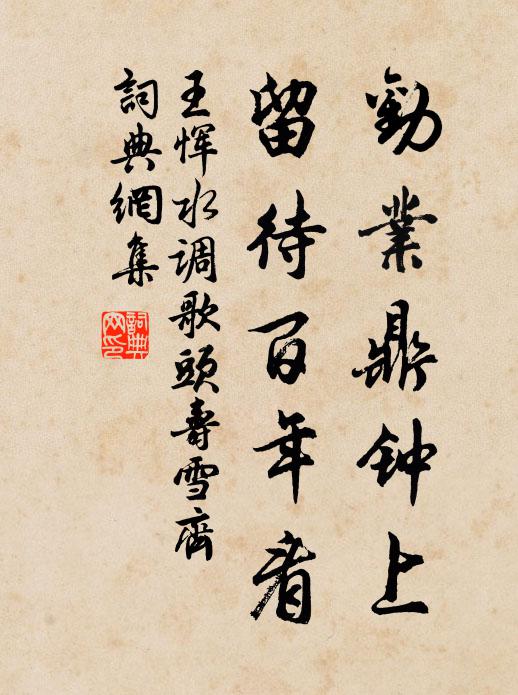 勋业鼎钟上
留待百年看
王恽水调歌头寿雪斋
詞典網集
詞典网印